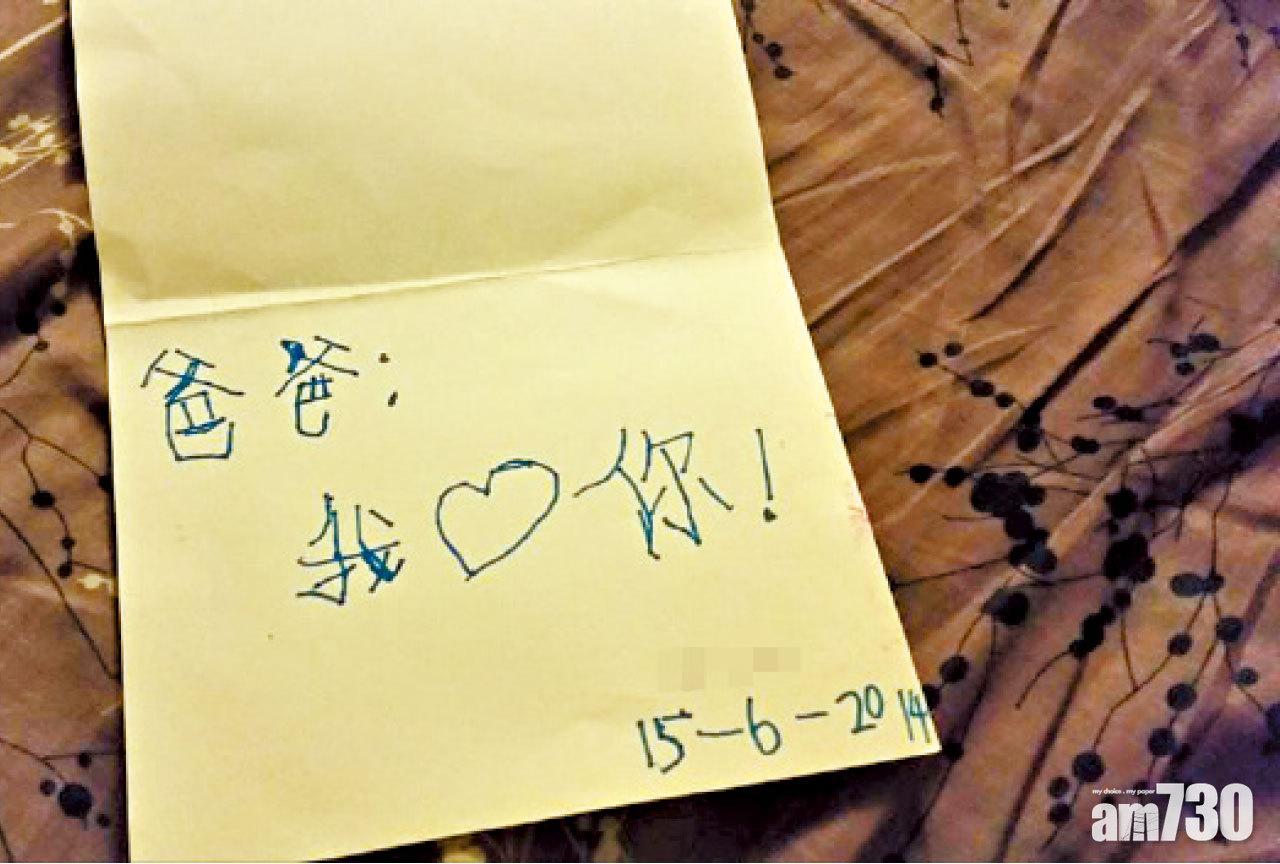 爸爸：
我♡你！
15-6-2014
my choice . my paper
am730